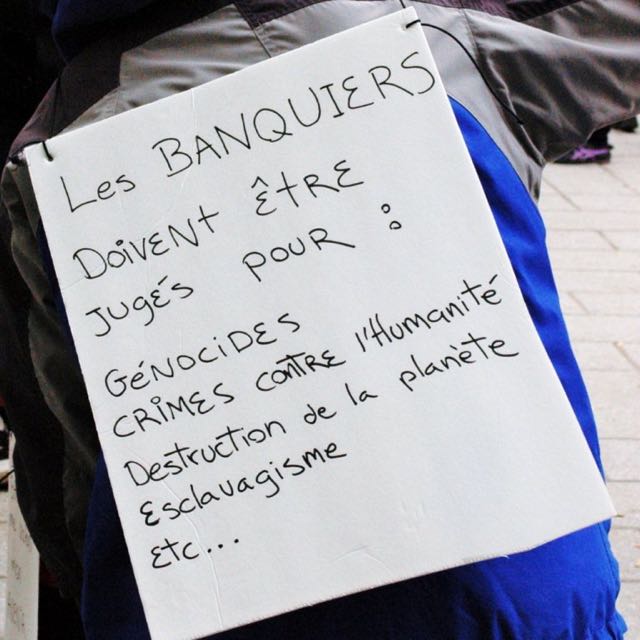 Les BANQUIERS
DOIVENT ÊTRE
JUGÉS POUR :
GÉNOCIDES
CRIMES CONTRE l'Humanité
Destruction de la planète
Esclavagisme
Etc...